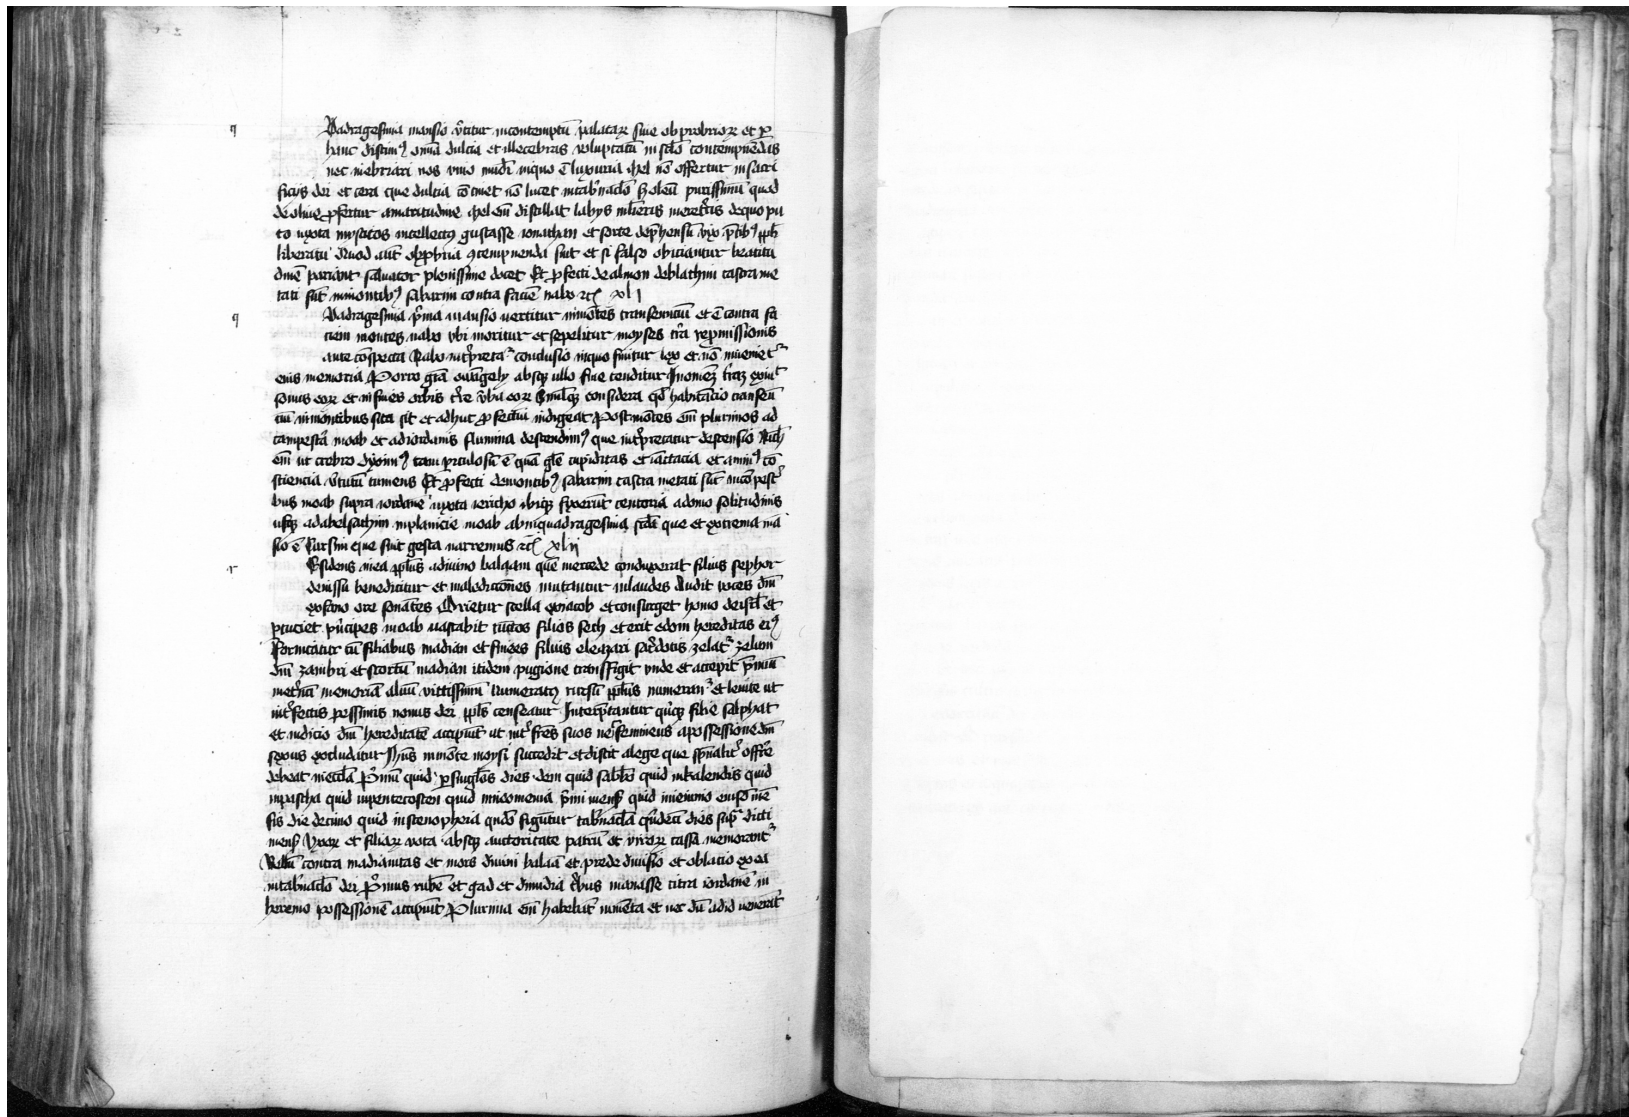 q Quadragesima mansio v̓titur in contemptū palatarꝝ siue obprobriorꝝ et ꝑ
hanc discimꝰ omīa dulcia et illecebras voluptatū in sc̄lo contempnēdas
nec inebriari nos vino in quo ē luxuria Mel nō offertur in sacri
ficijs dei et cera que dulcia cōtinet nō lucet in tab̓nac̄lo sꝫ oleū purissimū quod
de oliue ꝓfertur amaritudine Mel em̄ distillat labijs mulieris meret̓cis de quo pu
to iuxta mysticos intellectꝰ gustasse ionathan et sorte dep̓hensū vix p̄cibꝰ pp̄li
liberatū Quod aut̄ obprobria ꝯtempnenda sint et si falso obiciantur beatitu
dinē pariant saluator plenissime docet Et ꝓfecti de almon deblathim castra me
tati sūt in montibꝰ abarim contra faciē nabo rc̄ xli
q Quadragesima p̓ma mansio uertitur in mōtes transeuntiū et ē contra fa
ciem montes nabo vbi moritur et sepelitur moyses t̓ra repromissionis
ante cōspecta Nabo int̓p̓tat̓ conclusio in quo finitur lex et nō inuenietᷣ
eius memoria Porro gr̄a ewāgelij absqꝫ ullo fine tenditur In omnē t̓rā exiuit
sonus eorꝝ et in fines orbis t̓re v̓ba eorꝝ Simulqꝫ considera qd̓ habitacio transeū
cium in montibus sita sit et adhuc ꝓfectu indigeat Post mōtes em̄ plurimos ad
campestᷓa moab et ad iordanis flumina descendimꝰ que int̓pretatur descensio Nich̄
em̄ ut crebro diximꝰ tam ꝑiculosū ē quā gl̄e cupiditas et iactacia et animꝰ cō
sciencia v̓tutū tumens Et ꝓfecti de montibꝰ abarim castra metati sūt in cāpest̓
bus moab supra iordanē iuxta iericho ibiqꝫ fixerūt tentoria a domo solitudinis
usqꝫ ad abelsathim in planicie moab ab in quadragesima sc̄da que et extrema mā
sio ē cursim que sint gesta narremus rc̄ xlij
r Residens mea pp̄lus a diuino balaam quē mercede conduxerat filius sephor
denissū benedicitur et malediccōnes mutantur in laudes Audit voces dn̄i
ex sc̄o ore sonātes Orietur stella ex iacob et consurget homo de isrl̄ et
ꝑcuciet p̓ncipes moab uastabit cūctos filios seth et erit edom hereditas eiꝰ
fornicatur cū filiabus madian et finees filius eleazari sac̓dotis zelatꝰ zelum
dn̄i zambri et scortū madian itidem pugione transfigit vnde et accepit p̓miū
in et̓nū memoriā aluū vittissimū Numeratꝰ rursū pp̄lus numeranᷣ et leuite ut
int̓fectis pessimis nouus dei pp̄ls censeatur Interp̄tantur qn̓qꝫ filie salphat
et iudicio dn̄i hereditatē accipiūt ut int̓ fr̄es suos ne femineus a possessione dn̄i
sexus excludatur Ihūs in mōte moysi succedit et discit a lege que sp̄ualit̓ offr̄e
debeat in eccl̄ia P̓mū quid ꝑ singl̄os dies dein quid sabb̄o quid in kalendis quid
in pascha quid in pentecosten quid in neomenia p̓mi mens̄ quid in ieiunio eiusd̄ mē
sis die decimo quid in scenopheia qn̄do figūtur tab̓nac̄la q̓ndeciī dies sup̓dicti
mens̄ Vxorꝝ et filiarꝝ vota absqꝫ auctoritate patrū et virorꝝ cassa memorantᷣ
Bellū contra madianitas et mors diuini balaā et prede diuisio et oblacio ex ea
in tab̓nac̄lo dei P̓mus rubē et gad et dimidia t̓bus manasse citra iordanē in
heremo possessionē accipiūt Plurima em̄ habebāt iumēta et nec dū ad id venerāt